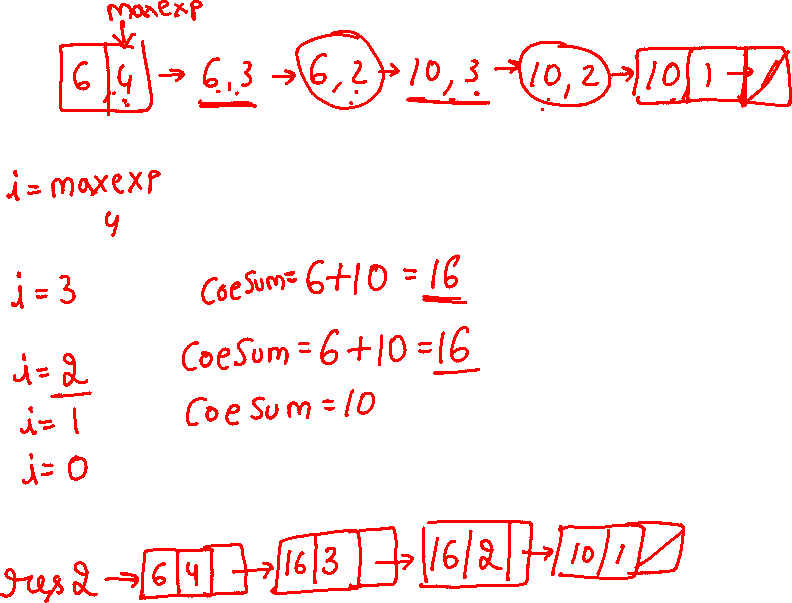 maxexp
6 4 → 6,3 → 6,2 → 10,3 → 10,2 → 10 1
i = maxexp
4
i = 3 CoeSum = 6+10 = 16
i = 2 CoeSum = 6+10 = 16
i = 1 CoeSum = 10
i = 0
res2 → 6 4 → 16 3 → 16 2 → 10 1